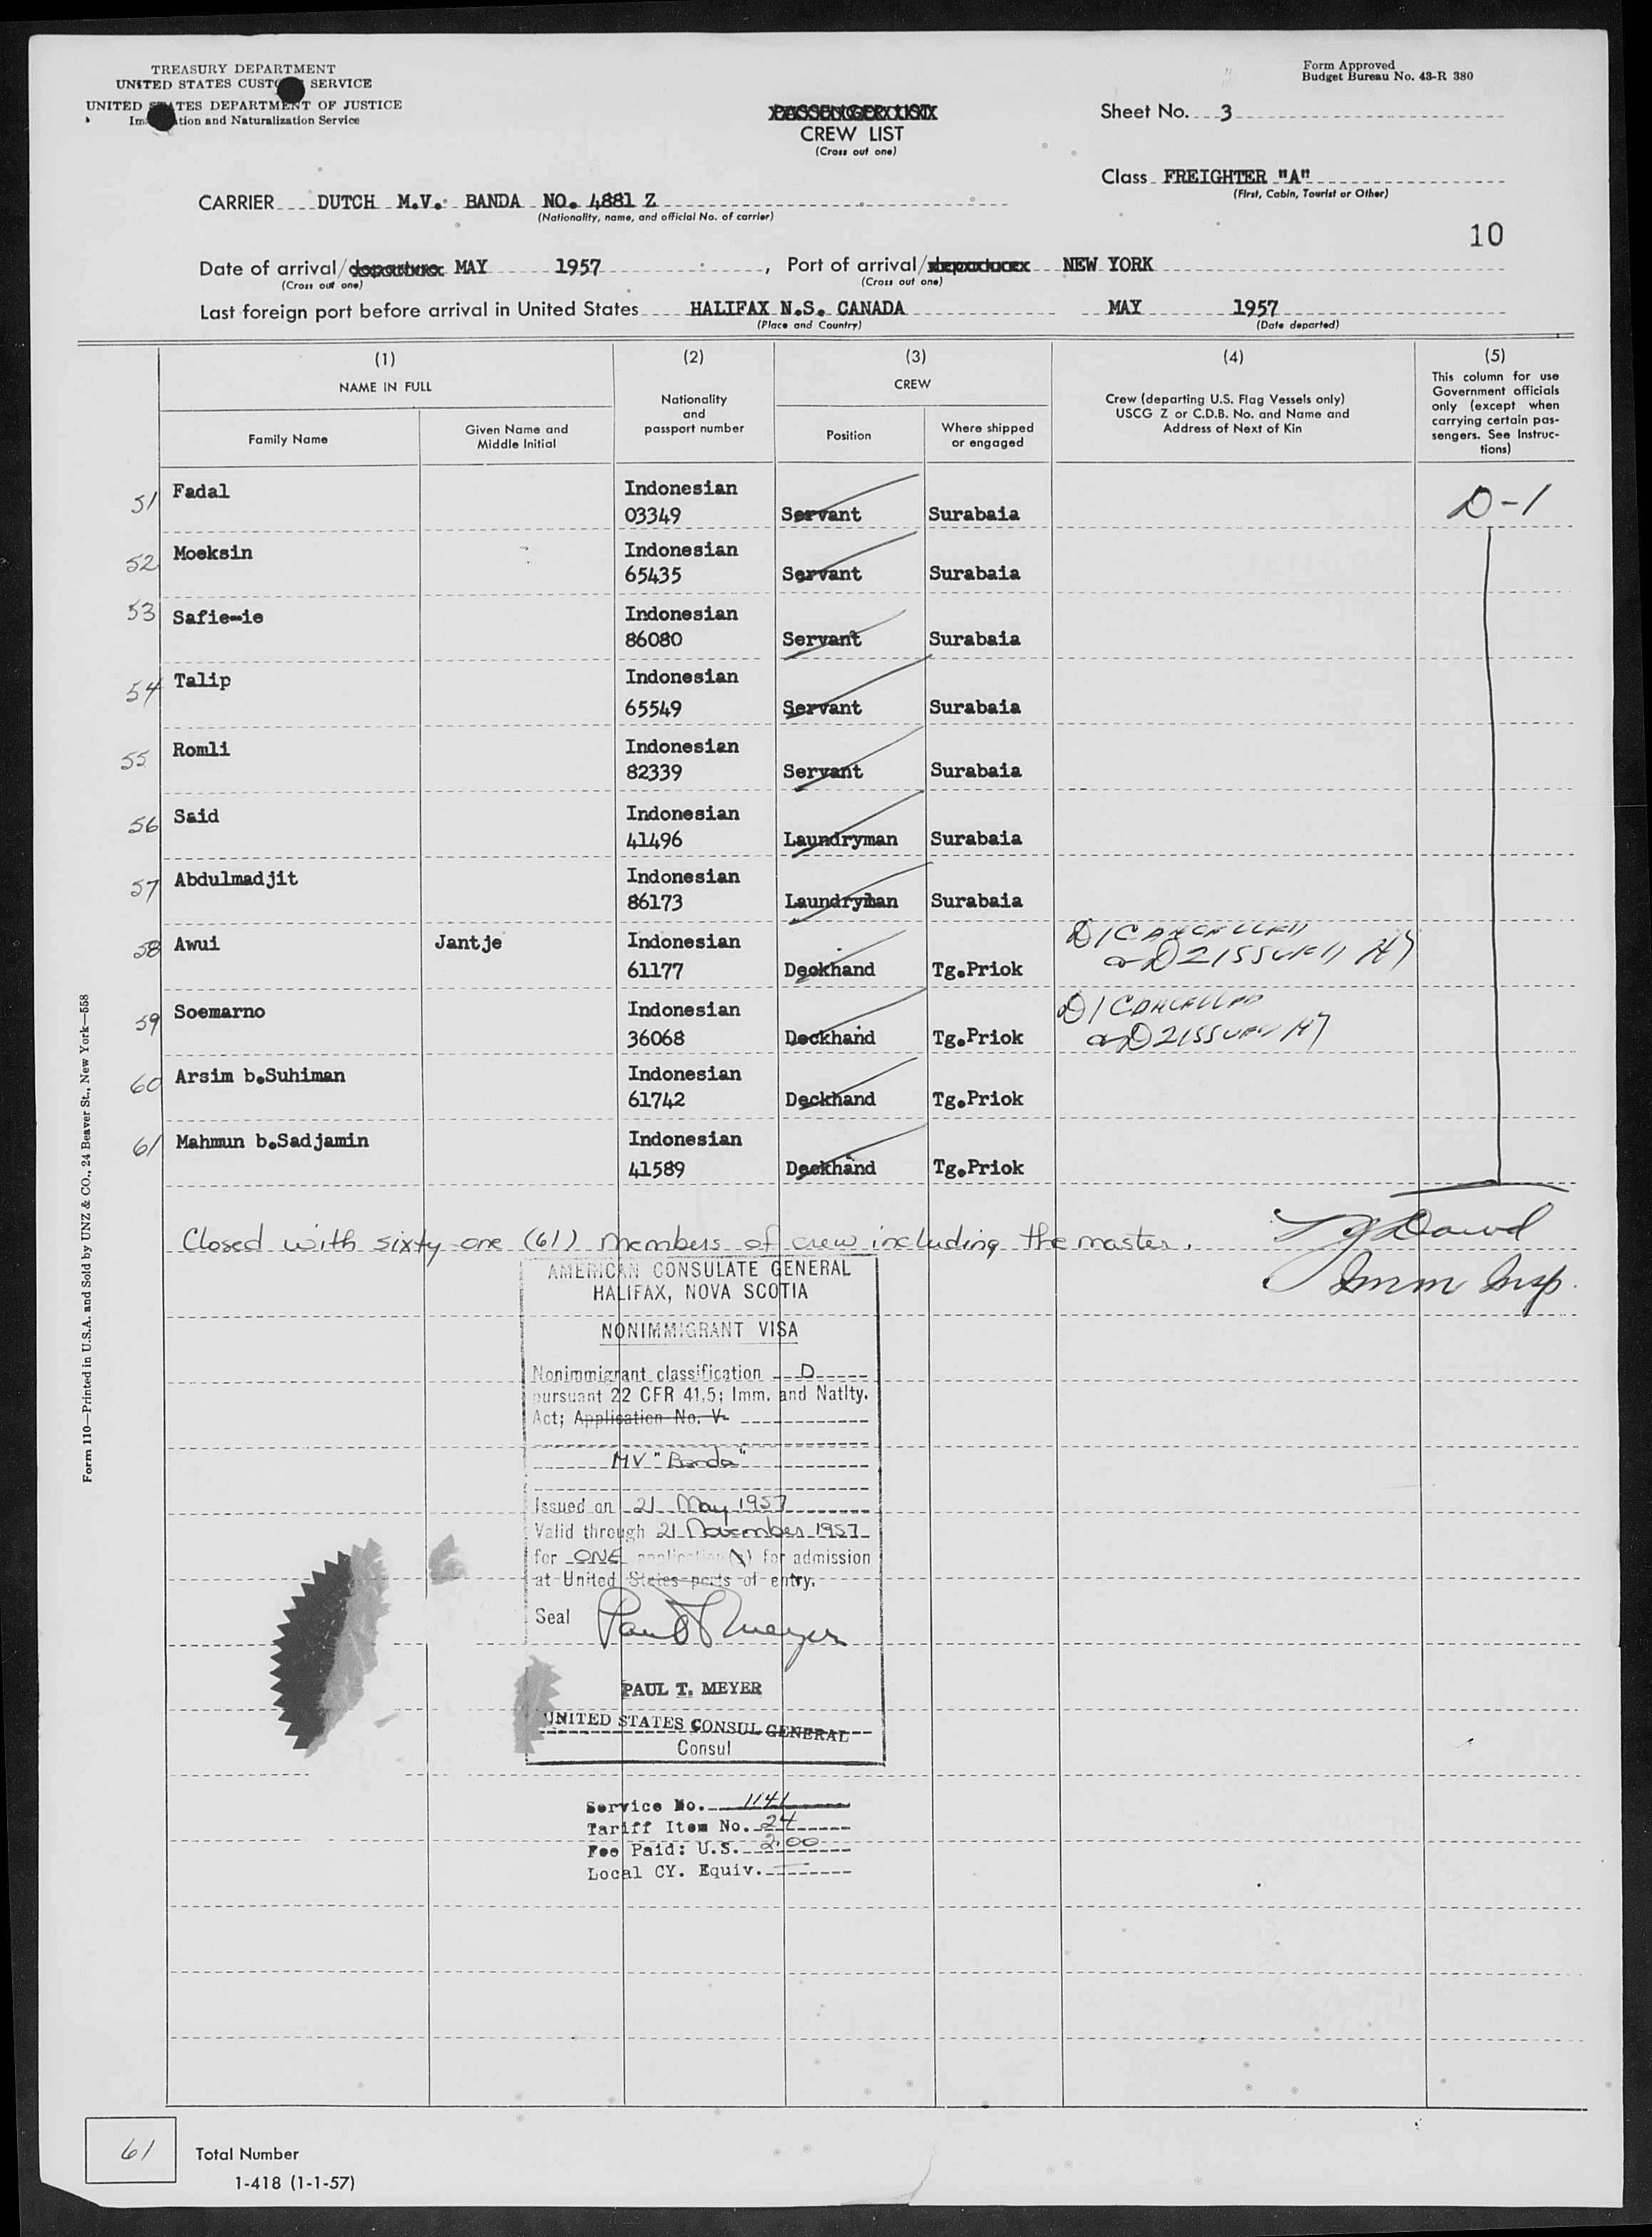 TREASURY DEPARTMENT
UNITED STATES CUSTOMS SERVICE
UNITED STATES DEPARTMENT OF JUSTICE
Immigration and Naturalization Service
Form Approved
Budget Bureau No. 43-R 380
PASSENGER LIST
CREW LIST
(Cross out one)
Sheet No. 3
Class FREIGHTER "A"
(First, Cabin, Tourist or Other)
CARRIER DUTCH M.V. BANDA NO. 4881 Z
(Nationality, name, and official No. of carrier)
10
Date of arrival/departure MAY 1957, Port of arrival/departure NEW YORK
(Cross out one) (Cross out one)
Last foreign port before arrival in United States HALIFAX N.S. CANADA MAY 1957
(Place and Country) (Date departed)
(1) (2) (3) (4) (5)
NAME IN FULL
Family Name
Given Name and Middle Initial
Nationality and passport number
CREW
Position
Where shipped or engaged
Crew (departing U.S. Flag Vessels only)
USCG Z or C.D.B. No. and Name and
Address of Next of Kin
This column for use
Government officials
only (except when
carrying certain pas-
sengers. See Instruc-
tions)
51 Fadal Indonesian
03349 Servant Surabaia D-1
52 Moeksin Indonesian
65435 Servant Surabaia
53 Safie-ie Indonesian
86080 Servant Surabaia
54 Talip Indonesian
65549 Servant Surabaia
55 Romli Indonesian
82339 Servant Surabaia
56 Said Indonesian
41496 Laundryman Surabaia
57 Abdulmadjit Indonesian
86173 Laundryman Surabaia
58 Awui Jantje Indonesian D1 CANCELLED
61177 Deckhand Tg.Priok and D2 ISSUED
59 Soemarno Indonesian D1 CANCELLED
36068 Deckhand Tg.Priok and D2 ISSUED
60 Arsim b.Suhiman Indonesian
61742 Deckhand Tg.Priok
61 Mahmun b.Sadjamin Indonesian
41589 Deckhand Tg.Priok
Closed with sixty-one (61) members of crew including the master.
Imm Insp.
AMERICAN CONSULATE GENERAL
HALIFAX, NOVA SCOTIA
NONIMMIGRANT VISA
Nonimmigrant classification D
pursuant 22 CFR 41.5; Imm. and Natlty.
Act; Application No. V-
MV "Banda"
Issued on 21 May 1957
Valid through 21 November 1957
for ONE application(s) for admission
at United States ports of entry.
Seal Paul T Meyer
PAUL T. MEYER
UNITED STATES CONSUL GENERAL
Consul
Service No. 1141
Tariff Item No. 24
Fee Paid: U.S. 2.00
Local CY. Equiv. —
Form 110—Printed in U.S.A. and Sold by UNZ & CO., 24 Beaver St., New York—558
61 Total Number
1-418 (1-1-57)